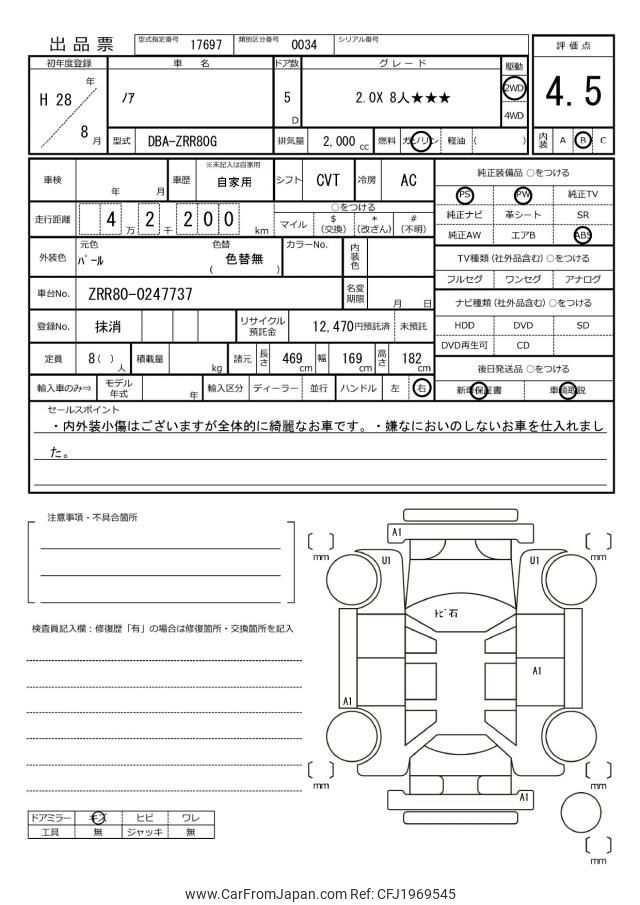 出品票 型式指定番号 17697 類別区分番号 0034 シリアル番号
評価点
4.5
内装 A B C
初年度登録 車名 ドア数 グレード 駆動
H 28 年 / 8 月 ノア 5 D 2.0X 8人★★★ 2WD 4WD
型式 DBA-ZRR80G 排気量 2,000 cc 燃料 ガソリン 軽油 ( )
車検 年 月 車歴 ※未記入は自家用 自家用 シフト CVT 冷房 AC
走行距離 4 2 万 2 0 0 千 km
○をつける
マイル $ (交換) * (改ざん) # (不明)
外装色 元色 パール 色替 ( 色替無 ) カラーNo. 内装色
車台No. ZRR80-0247737 名変期限 月 日
登録No. 抹消 リサイクル預託金 12,470円預託済 未預託
定員 8( )人 積載量 kg 諸元 長さ 469 cm 幅 169 cm 高さ 182 cm
輸入車のみ⇒ モデル年式 年 輸入区分 ディーラー 並行 ハンドル 左 右
純正装備品 ○をつける
PS PW 純正TV
純正ナビ 革シート SR
純正AW エアB ABS
TV種類 (社外品含む) ○をつける
フルセグ ワンセグ アナログ
ナビ種類 (社外品含む) ○をつける
HDD DVD SD
DVD再生可 CD
後日発送品 ○をつける
新車保証書 車輌取説
セールスポイント
・内外装小傷はございますが全体的に綺麗なお車です。・嫌なにおいのしないお車を仕入れまし
た。
注意事項・不具合箇所
検査員記入欄：修復歴「有」の場合は修復箇所・交換箇所を記入
ドアミラー キズ ヒビ ワレ
工具 無 ジャッキ 無
A1
mm mm
U1 U1
トビ石
A1
A1
mm mm
A1
mm
www.CarFromJapan.com Ref: CFJ1969545